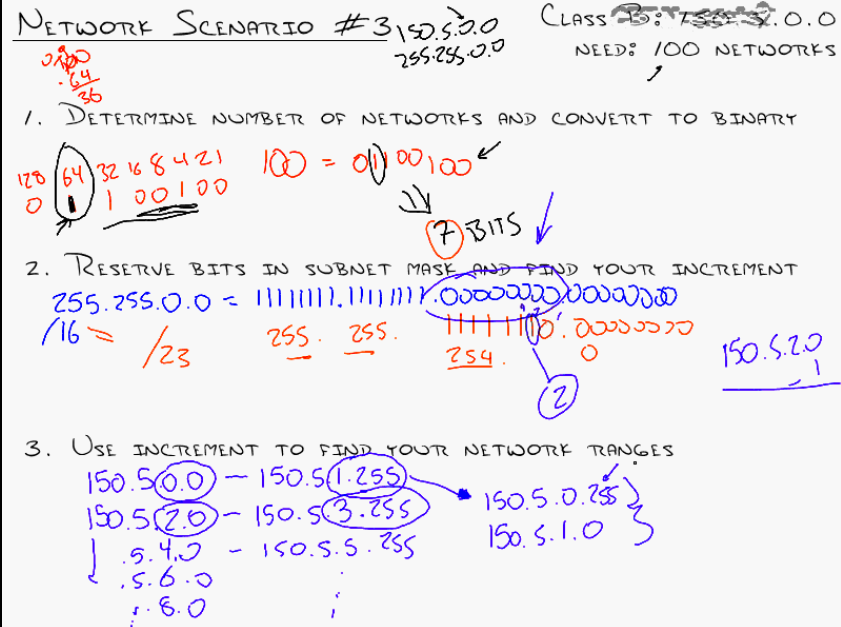 NETWORK SCENARIO #3
150.5.0.0
255.255.0.0
CLASS B: .0.0
NEED: 100 NETWORKS
64
36
1. DETERMINE NUMBER OF NETWORKS AND CONVERT TO BINARY
128 64 32 16 8 4 2 1
0 1 1 0 0 1 0 0
100 = 01100100
7 BITS
2. RESERVE BITS IN SUBNET MASK AND FIND YOUR INCREMENT
255.255.0.0 = 11111111.11111111.00000000.00000000
/16 = /23
255. 255. 11111110.00000000
254. 0
2
150.5.2.0
- 1
3. USE INCREMENT TO FIND YOUR NETWORK RANGES
150.5.0.0 - 150.5.1.255
150.5.2.0 - 150.5.3.255
.5.4.0 - 150.5.5.255
.5.6.0
.8.0
150.5.0.255
150.5.1.0